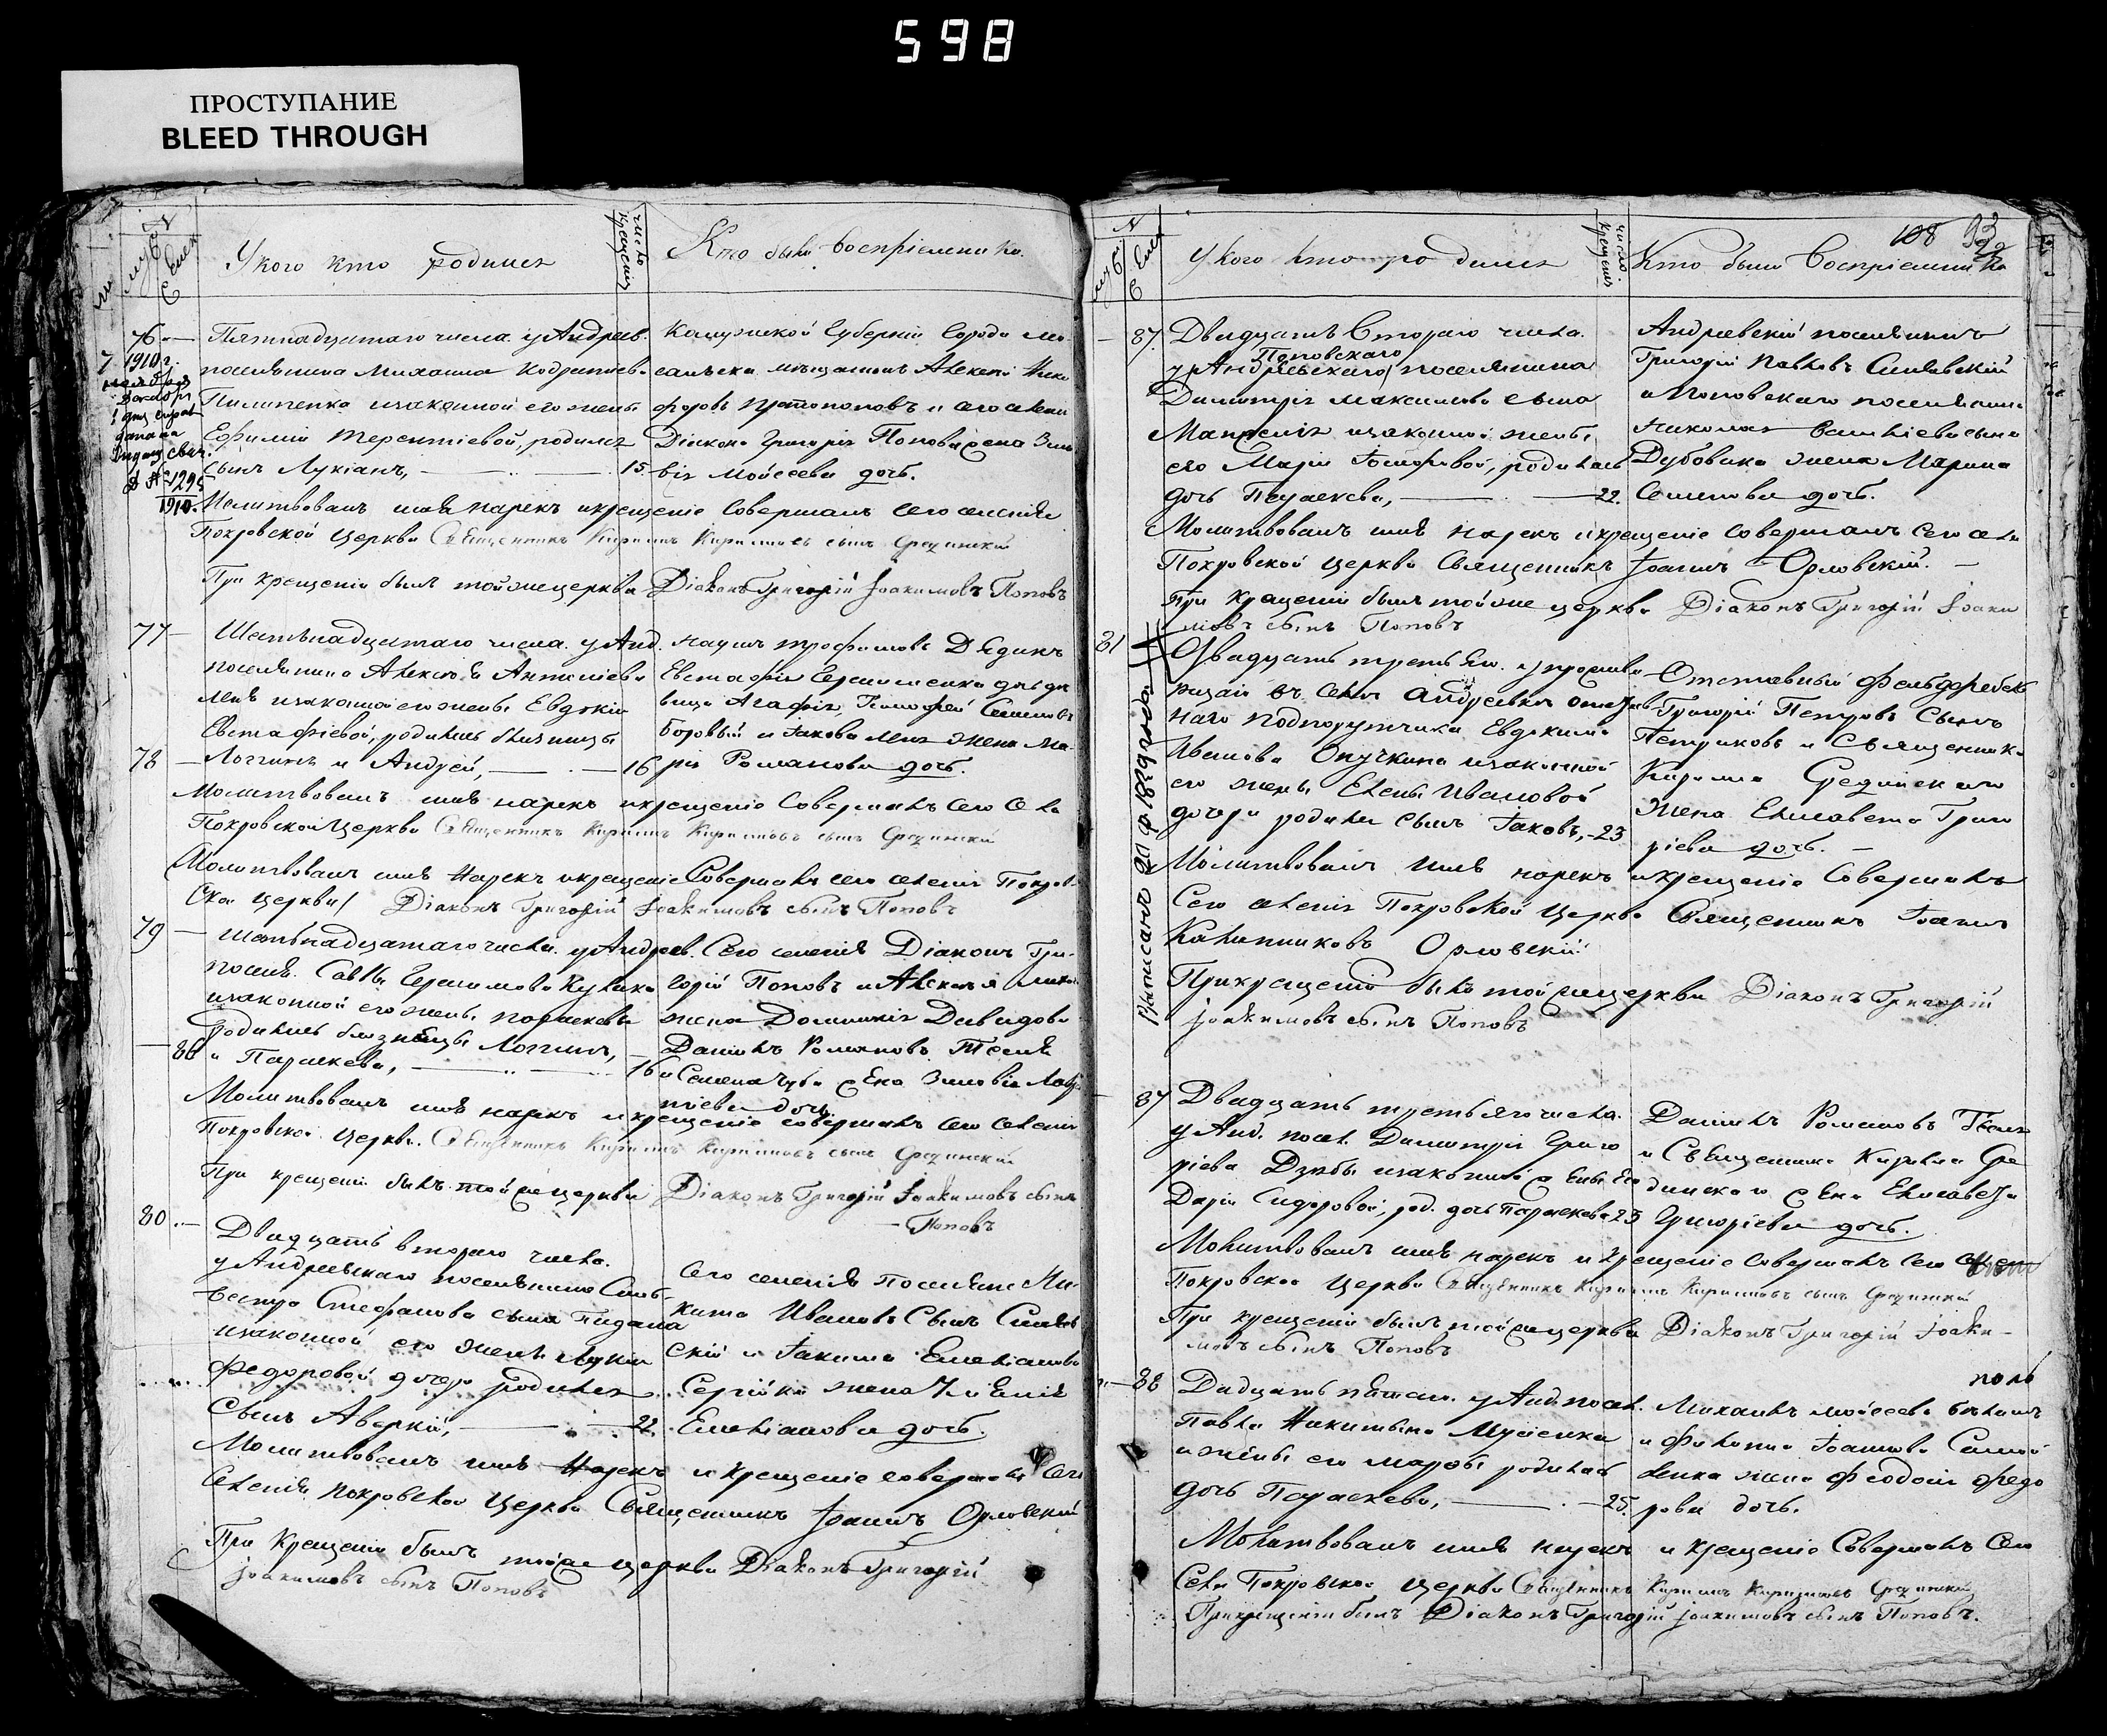 598
ПРОСТУПАНИЕ
BLEED THROUGH
№
муж
Ү кого кто родился
число крещенія
Кто были воспріемники
76
Пятнадцатаго числа у Андреев.
поселянина Михаила Кодратиева
Пилипенка и законной его жены
Ефимии Терентіевой, родился
сынъ Лукіанъ, 15
1910 г.
1910.
Калужской Губерніи города
мѣщанинъ Алексей
и сего селенія
Діакона Григорія Попова жена
Моисеева дочь.
Молитвовалъ имя нарекъ и крещеніе совершалъ сего селенія
Покровской Церкви Священникъ Кирилъ Кириловъ сынъ Срединскій
При крещеніи былъ той же церкви Діаконъ Григорій Іоакимовъ Поповъ
77
Шестьнадцатаго числа у Анд.
поселянина Алексѣя
и законной его жены Евдокіи
Евстафіевой, родились близнецы
78
Логгинъ и Андрей, 16
Трофимовъ Дѣдикъ
Евстафія Герасименка дочь
Агафія, Тимофей Семеновъ
Боровый и Іакова жена Ма-
рія Романова дочь.
Молитвовалъ имя нарекъ и крещеніе совершалъ сего села
Покровской Церкви Священникъ Кирилъ Кириловъ сынъ Срединскій
Молитвовалъ имя нарекъ и крещеніе совершалъ сего селенія Покров-
ской церкви Діаконъ Григорій Іоакимовъ сынъ Поповъ
79
Шестьнадцатаго числа у Андреев.
посел. Саввы Герасимова Кулика
и законной его жены Параскевы
родились близнецы Логгинъ,
80
и Параскева, 16
Сего селенія Діаконъ Гри-
горій Поповъ и Алексѣя
жена Домникія Давидова
Даниилъ Романовъ Теслѣ
и Семена Чуба жена Зиновія
дочь
Молитвовалъ имя нарекъ и крещеніе совершалъ сего селенія
Покровской Церкви Священникъ Кирилъ Кириловъ сынъ Срединскій
При крещеніи былъ той же церкви Діаконъ Григорій Іоакимовъ сынъ
Поповъ
80
Двадцать втораго числа.
у Андреевскаго поселянина Силь-
вестра Стефанова сына
и законной его жены Лукіи
Федоровой дочери родился
сынъ Аверкій, 22.
Сего селенія поселяне Ни-
кита Ивановъ сынъ Синяв
скій и Іакима Емеліанова
Сергійка жена
Емеліанова дочь.
Молитвовалъ имя нарекъ и крещеніе совершалъ сего
селенія Покровской Церкви Священникъ Іоаннъ Орловскій
При крещеніи былъ той же церкви Діаконъ Григорій
Іоакимовъ сынъ Поповъ
№
108 93
У кого кто родился
число крещенія
Кто были воспріемники
87.
Двадцать втораго числа.
Поповскаго
у Андреевскаго поселянина
Димитрія Максимова сына
и законной жены
его Маріи Іосифовой, родилась
дочь Параскева, 22.
Андреевскій поселянинъ
Григорій Павловъ Синявскій
и Поповскаго поселянина
Николая Васильева сына
Дубовика жена Марина
Семенова дочь.
Молитвовалъ имя нарекъ и крещеніе совершалъ сего села
Покровской церкви Священникъ Іоаннъ Орловскій.
При крещеніи былъ той же церкви Діаконъ Григорій Іоаки
мовъ сынъ Поповъ
81
Двадцать третьяго. у прожива
ющаго въ селѣ Андреевки отстав
наго подпоручика Евдокима
Иванова Опучкина и законной
его жены Елены Ивановой
дочери родился сынъ Іаковъ, 23
Отставный Фельдфебель
Григорій Петровъ сынъ
Петриковъ и Священника
Кирила Срединскаго
жена Елисавета Григо
ріева дочь.
Молитвовалъ имя нарекъ и крещеніе совершалъ
сего селенія Покровской Церкви Священникъ Іоаннъ
Калинниковъ Орловскій
При крещеніи былъ той же церкви Діаконъ Григорій
Іоакимовъ сынъ Поповъ
87
Двадцать третьяго числа.
у Анд. посел. Димитрія Григо
ріева Дзюбы и законной жены его
Даріи Сидоровой, род. дочь Параскева 23
Даниилъ Романовъ Тесля
и Священника Кирила Сре
динскаго жена Елисавета
Григоріева дочь.
Молитвовалъ имя нарекъ и крещеніе совершалъ сего
Покровской Церкви Священникъ Кирилъ Кириловъ сынъ Срединскій
При крещеніи былъ той же церкви Діаконъ Григорій Іоаки-
мовъ сынъ Поповъ
88
Двадцать пятаго. у Анд. посел.
Павла Никитина Мусіенка
и жены его Марѳы родилась
дочь Параскева, 25.
Михаилъ Моисеевъ
и Филипа Іоаннова Самой
ленка жена Феодосія Федо
рова дочь.
Молитвовалъ имя нарекъ и крещеніе совершалъ сего
села Покровской Церкви Священникъ Кирилъ Кириловъ Срединскій
При крещеніи былъ Діаконъ Григорій Іоакимовъ сынъ Поповъ.